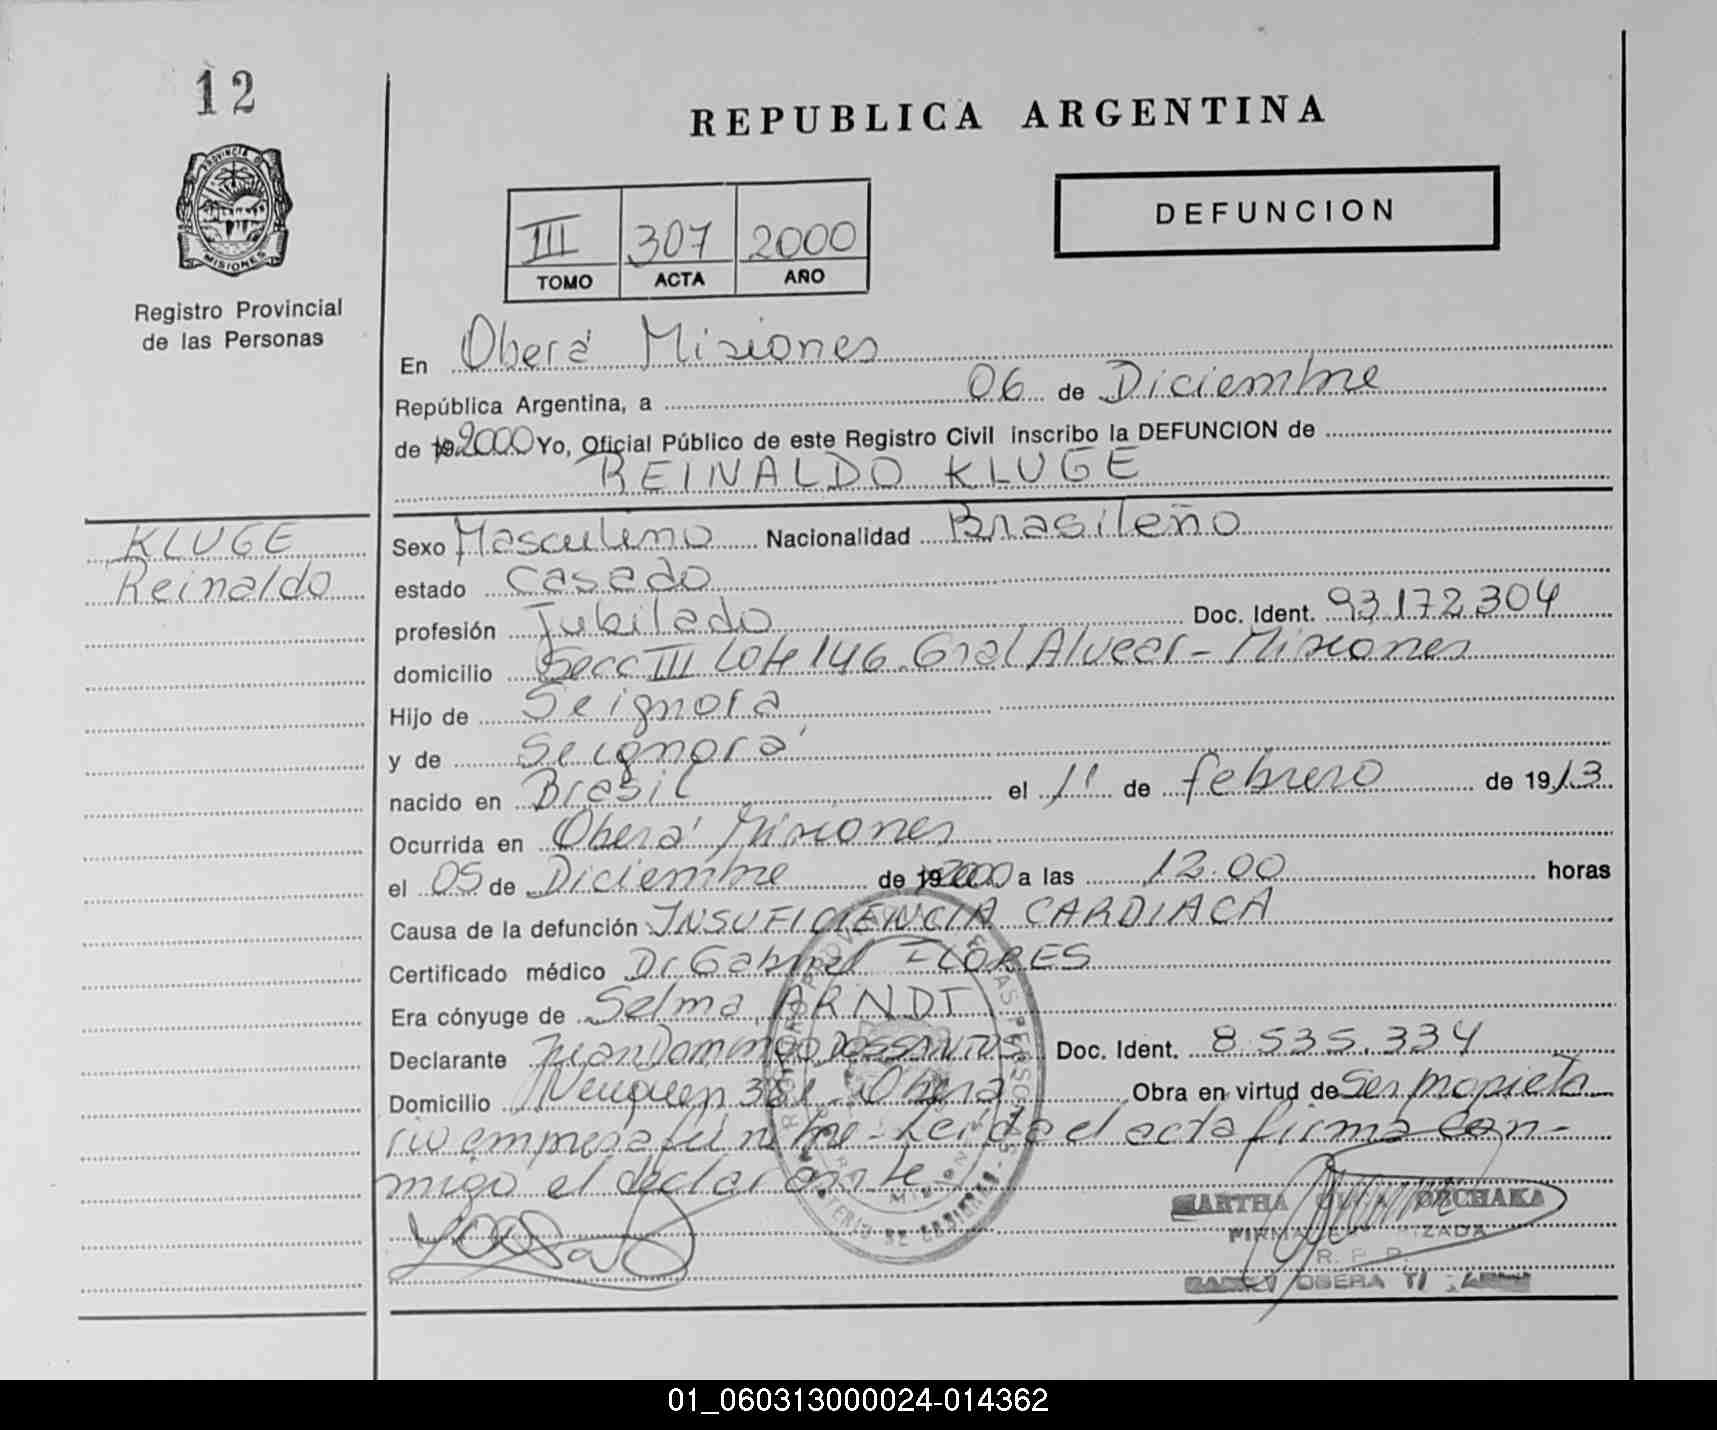 12
PROVINCIA D
MISIONES
Registro Provincial
de las Personas
REPUBLICA ARGENTINA
III 307 2000
TOMO ACTA AÑO
DEFUNCION
En Oberá Misiones
República Argentina, a 06 de Diciembre
de 19 2000 Yo, Oficial Público de este Registro Civil inscribo la DEFUNCION de
REINALDO KLUGE
KLUGE
Reinaldo
Sexo Masculino Nacionalidad Brasileño
estado Casado
profesión Jubilado Doc. Ident. 93.172.304
domicilio Secc III Lote 146 Gral Alvear - Misiones
Hijo de Se ignora
y de Se ignora
nacido en Brasil el 11 de febrero de 1913
Ocurrida en Oberá Misiones
el 05 de Diciembre de 19 2000 a las 12.00 horas
Causa de la defunción INSUFICIENCIA CARDIACA
Certificado médico Dr Gabriel FLORES
Era cónyuge de Selma ARNDT
Declarante Juan Domingo DOSSANTOS Doc. Ident. 8.535.334
Domicilio Neuquen 381 - Oberá Obra en virtud de Ser propieta
rio empresa fúnebre - Leída el acta firma con-
migo el declarante
MARTHA ORCHAKA
R. P. P.
OBERA
01_060313000024-014362